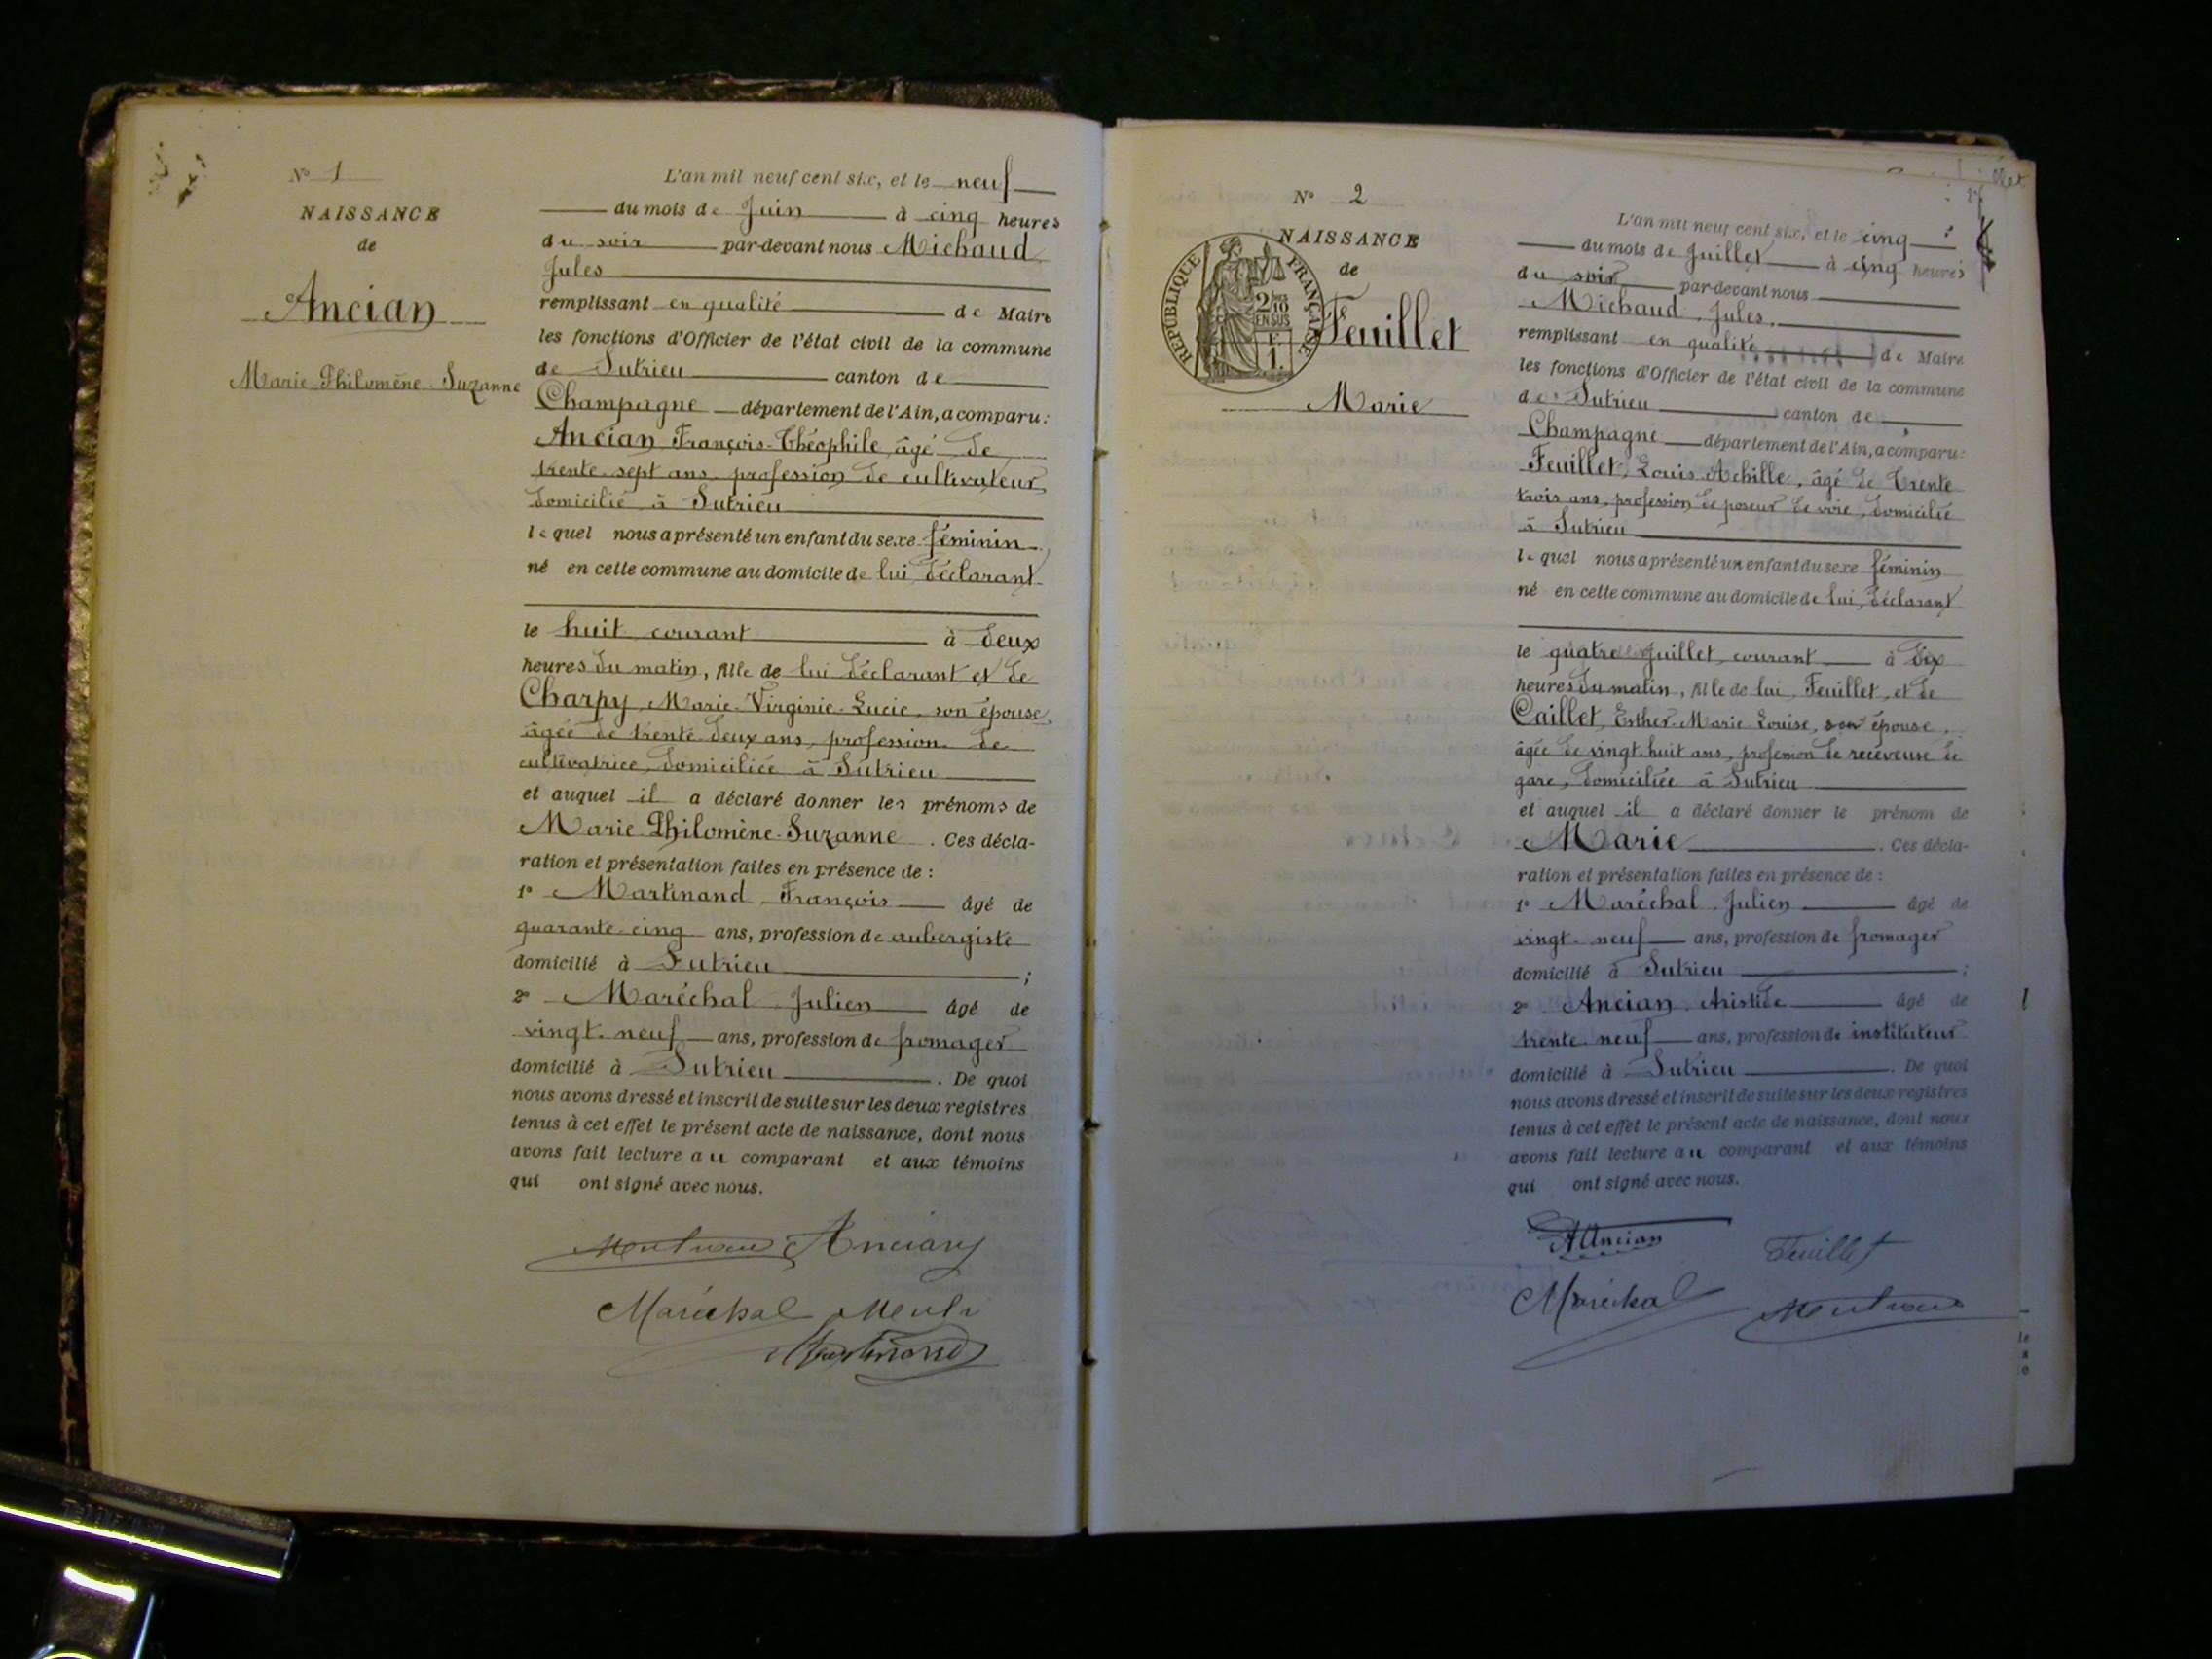 N° 1
NAISSANCE
de
Ancian
Marie Philomène Suzanne
L'an mil neuf cent six, et le neuf
du mois de Juin à cinq heures
du soir par-devant nous Michaud
Jules
remplissant en qualité de Maire
les fonctions d'Officier de l'état civil de la commune
de Sutrieu canton de
Champagne département de l'Ain, a comparu :
Ancian François-Théophile, âgé de
trente-sept ans, profession de cultivateur,
domicilié à Sutrieu
lequel nous a présenté un enfant du sexe féminin
né en cette commune au domicile de lui, déclarant
le huit courant à deux
heures du matin, fille de lui déclarant et de
Charpy, Marie-Virginie-Lucie, son épouse,
âgée de trente-deux ans, profession de
cultivatrice, domiciliée à Sutrieu
et auquel il a déclaré donner les prénoms de
Marie-Philomène-Suzanne. Ces décla-
ration et présentation faites en présence de :
1° Martinand François âgé de
quarante-cinq ans, profession de aubergiste
domicilié à Sutrieu ;
2° Maréchal Julien âgé de
vingt-neuf ans, profession de fromager
domicilié à Sutrieu . De quoi
nous avons dressé et inscrit de suite sur les deux registres
tenus à cet effet le présent acte de naissance, dont nous
avons fait lecture au comparant et aux témoins
qui ont signé avec nous.
Ancian
Maréchal
Martinand
N° 2
NAISSANCE
de
RÉPUBLIQUE FRANÇAISE
2/10
EN SUS
F.
1.
Feuillet
Marie
L'an mil neuf cent six, et le cinq
du mois de Juillet à cinq heures
du soir par-devant nous
Michaud Jules,
remplissant en qualité de Maire
les fonctions d'Officier de l'état civil de la commune
de Sutrieu canton de
Champagne département de l'Ain, a comparu :
Feuillet, Louis Achille, âgé de trente
trois ans, profession de poseur de voie, domicilié
à Sutrieu
lequel nous a présenté un enfant du sexe féminin
né en cette commune au domicile de lui, déclarant
le quatre Juillet courant à dix
heures du matin, fille de lui, Feuillet, et de
Caillet, Esther-Marie Louise, son épouse,
âgée de vingt-huit ans, profession de receveuse de
gare, domiciliée à Sutrieu
et auquel il a déclaré donner le prénom de
Marie . Ces décla-
ration et présentation faites en présence de :
1° Maréchal Julien âgé de
vingt-neuf ans, profession de fromager
domicilié à Sutrieu ;
2° Ancian Aristide âgé de
trente neuf ans, profession de instituteur
domicilié à Sutrieu . De quoi
nous avons dressé et inscrit de suite sur les deux registres
tenus à cet effet le présent acte de naissance, dont nous
avons fait lecture au comparant et aux témoins
qui ont signé avec nous.
AAncian
Feuillet
Maréchal